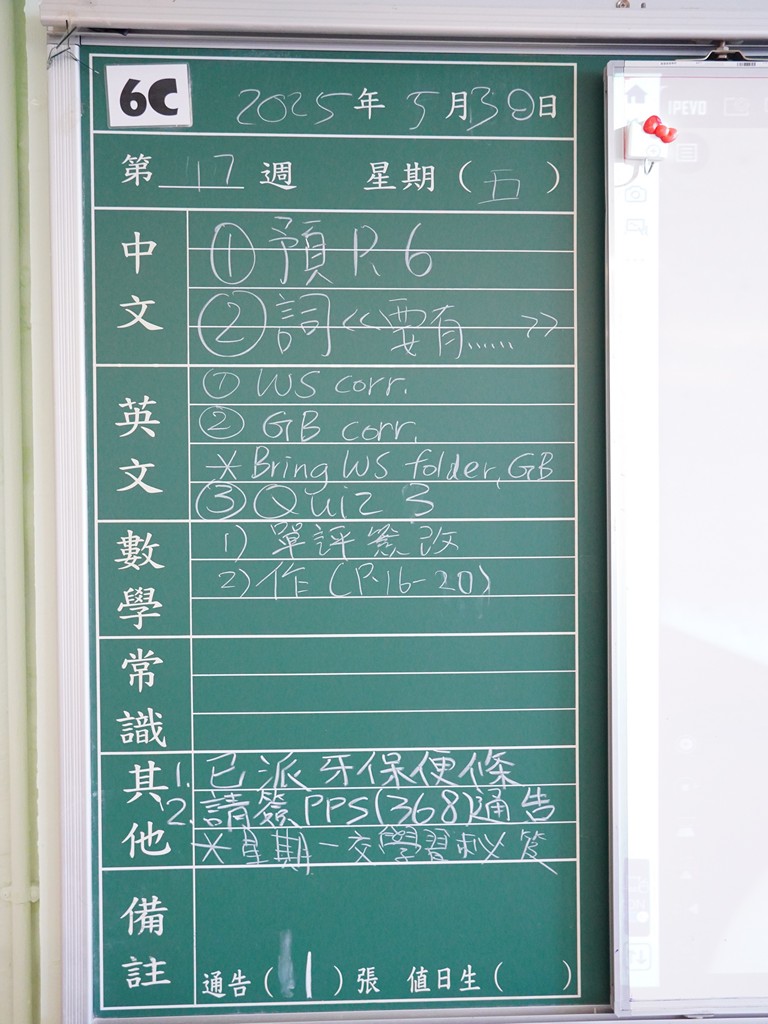 6C 2025年5月30日
第 17 週 星期(五)
中文
① 預 P. 6
② 詞《要有......》
英文
① WS corr.
② GB corr.
* Bring WS folder, GB
③ Quiz 3
數學
1) 單評簽改
2) 作 (P.16-20)
常識
其他
1. 已派牙保便條
2. 請簽PPS(368)通告
* 星期一交學習秘笈
備註
通告(1)張 值日生( )
IPEVO